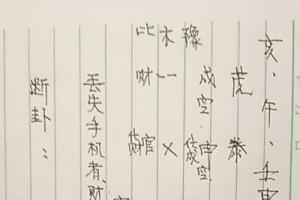 亥、午、壬
虎 泰
成空 空
木 一 ×
比 财 官
丢失手机者、财
断卦：